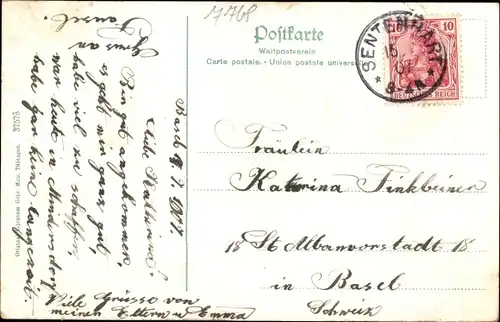 17768
Postkarte
Weltpostverein
Carte postale. - Union postale universelle
SENTENHART
10 10
DEUTSCHES REICH
Fräulein
Katharina Finkbeiner
18 St Albanvorstadt 18
in Basel
Schweiz
1907.
Liebe Katharina!
Bin gut angekommen,
es geht mir ganz gut,
habe viel zu schaffen,
war heute in Mindersdorf
habe gar keine langezeit.
Viele Grüsse von
meinen Eltern u Emma
Gruss an
37575